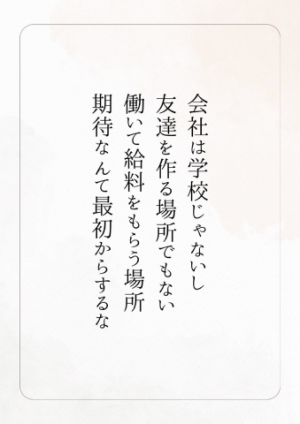 会社は学校じゃないし
友達を作る場所でもない
働いて給料をもらう場所
期待なんて最初からするな